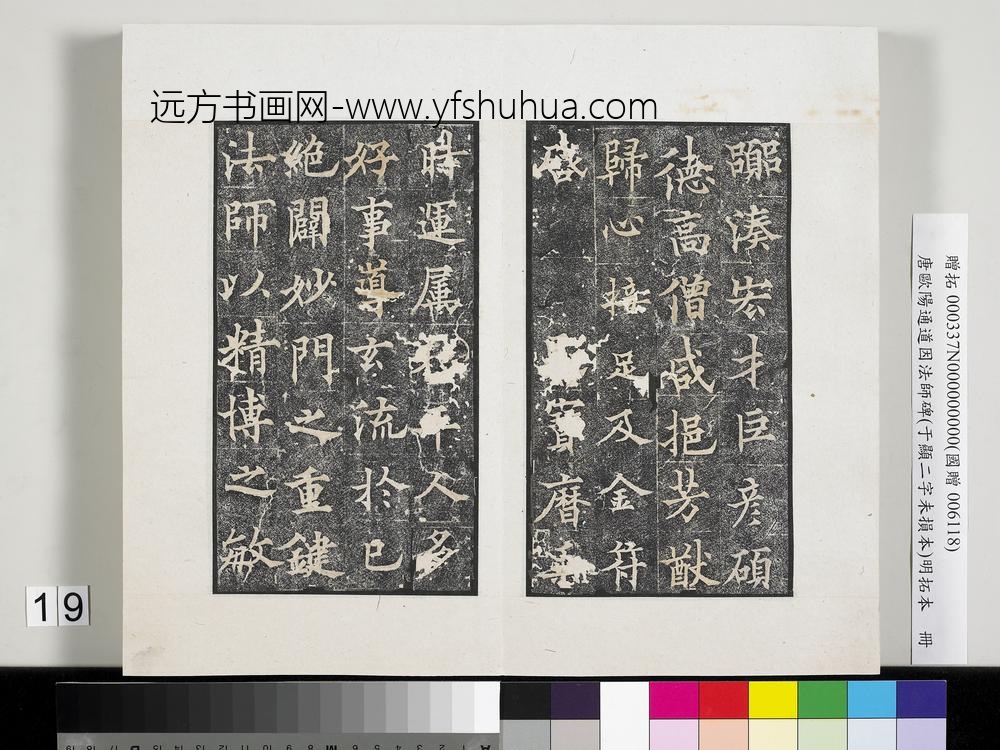 远方书画网-www.yfshuhua.com
湊宏才巨彦碩
德高僧咸挹芳猷
歸心接足及金符
啓寳曆
時運属平人多
好事導玄流於已
絕闢妙門之重鍵
法師以精博之敏
贈拓 000337N000000000(國贈 006118)
唐歐陽通道因法師碑(于顯二字未損本)明拓本 冊
19